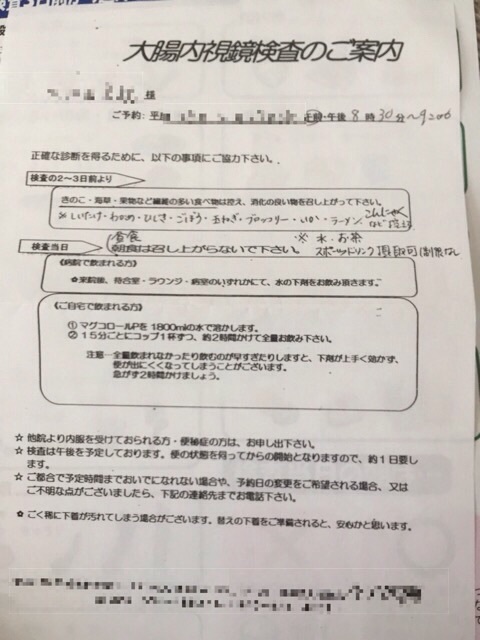 大腸内視鏡検査のご案内
様
ご予約: 平 午後 8 時 30 分~9:00
正確な診断を得るために、以下の事項にご協力下さい。
検査の2~3日前より
きのこ・海草・果物など繊維の多い食べ物は控え、消化の良い物を召し上がって下さい。
※しいたけ・わかめ・ひじき・ごぼう・玉ねぎ・ブロッコリー・いか・ラーメン、こんにゃく
など
検査当日
昼食
朝食は召し上がらないで下さい。
※ 水・お茶
スポーツドリンク 可 制限なし
《病院で飲まれる方》
☆来院後、待合室・ラウンジ・病室のいずれかにて、水の下剤をお飲み頂きます。
《ご自宅で飲まれる方》
①マグコロールPを 1800mlの水で溶かします。
②15分ごとにコップ1杯ずつ、約2時間かけて全量お飲み下さい。
注意…全量飲まれなかったり飲むのが早すぎたりしますと、下剤が上手く効かず、
便が出にくくなってしまうことがございます。
急がず2時間かけましょう。
☆他院より内服を受けておられる方・便秘症の方は、お申し出下さい。
☆検査は午後を予定しております。便の状態を伺ってからの開始となりますので、約1日要し
ます。
☆ご都合で予定時間までおいでになれない場合や、予約日の変更をご希望される場合、又は
ご不明な点がございましたら、下記の連絡先までお電話下さい。
✿ごく稀に下着が汚れてしまう場合がございます。替えの下着をご準備されると、安心かと思います。